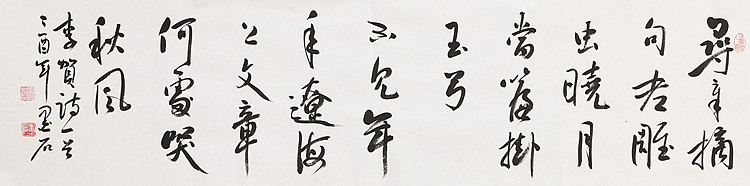 尋章摘
句老雕
虫曉月
當簾掛
玉弓
不見年
年遼海
上文章
何處哭
秋風
李賀詩一首
乙酉年墨石